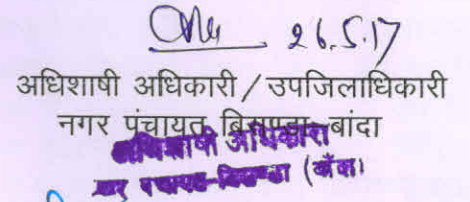 26.5.17
अधिशाषी अधिकारी / उपजिलाधिकारी
नगर पंचायत बिसण्डा बांदा
अधिशाषी अधिकारी
नगर पंचायत-बिसण्डा (बाँदा)